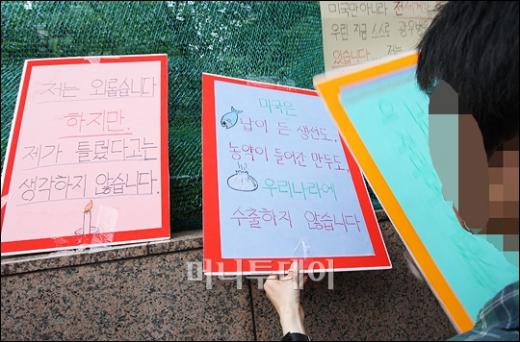 저는 외롭습니다
하지만,
제가 틀렸다고는
생각하지 않습니다.
미국은
납이 든 생선도,
농약이 들어간 만두도,
우리나라에
수출하지 않습니다
미국만 아니라 전세계가
우린 지금 스스로 광우병
있습니다. 저는
머니투데이